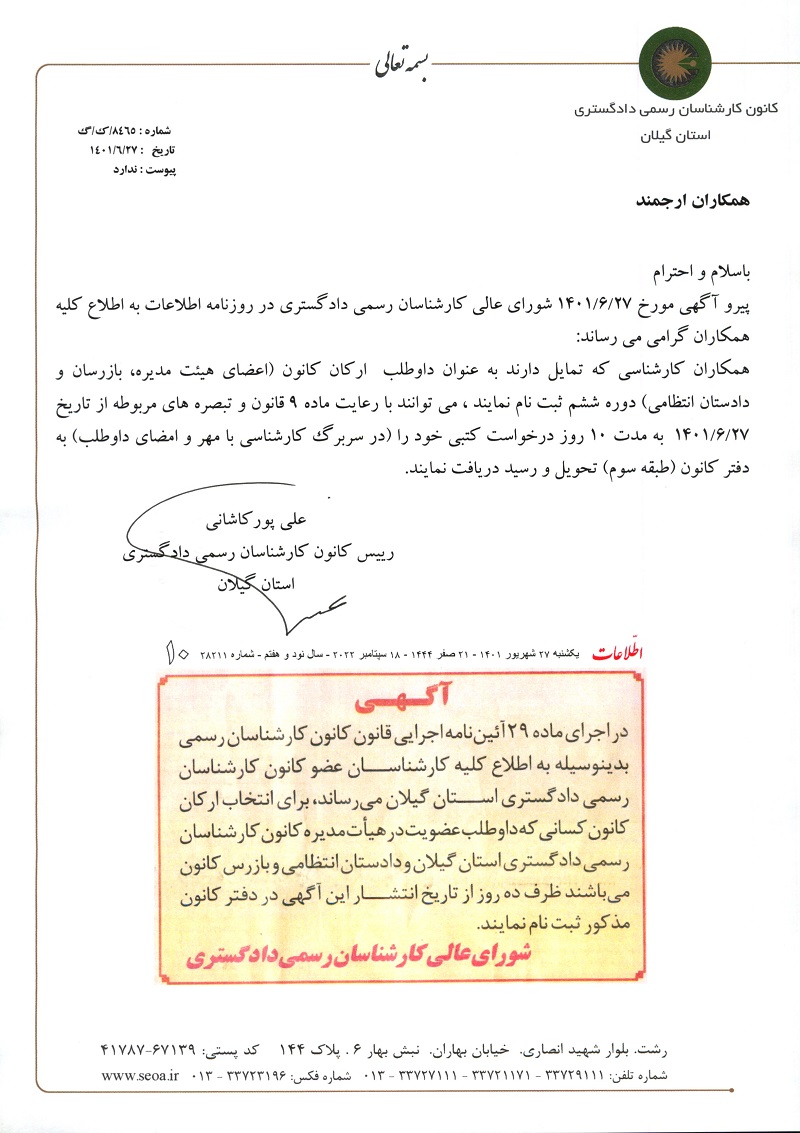 بسمه تعالی
کانون کارشناسان رسمی دادگستری
استان گیلان
شماره : ۸٤٦٥/ک/گ
تاریخ : ۱٤۰۱/٦/۲۷
پیوست : ندارد
همکاران ارجمند
باسلام و احترام
پیرو آگهی مورخ ۱۴۰۱/۶/۲۷ شورای عالی کارشناسان رسمی دادگستری در روزنامه اطلاعات به اطلاع کلیه
همکاران گرامی می رساند:
همکاران کارشناسی که تمایل دارند به عنوان داوطلب ارکان کانون (اعضای هیئت مدیره، بازرسان و
دادستان انتظامی) دوره ششم ثبت نام نمایند ، می توانند با رعایت ماده ۹ قانون و تبصره های مربوطه از تاریخ
۱۴۰۱/۶/۲۷ به مدت ۱۰ روز درخواست کتبی خود را (در سربرگ کارشناسی با مهر و امضای داوطلب) به
دفتر کانون (طبقه سوم) تحویل و رسید دریافت نمایند.
علی پورکاشانی
رییس کانون کارشناسان رسمی دادگستری
استان گیلان
اطلاعات یکشنبه ۲۷ شهریور ۱۴۰۱ - ۲۱ صفر ۱۴۴۴ - ۱۸ سپتامبر ۲۰۲۲ - سال نود و هفتم - شماره ۲۸۲۱۱
آگهی
در اجرای ماده ۲۹ آئین‌نامه اجرایی قانون کانون کارشناسان رسمی
بدینوسیله به اطلاع کلیه کارشناسان عضو کانون کارشناسان
رسمی دادگستری استان گیلان می‌رساند، برای انتخاب ارکان
کانون کسانی که داوطلب عضویت در هیأت مدیره کانون کارشناسان
رسمی دادگستری استان گیلان و دادستان انتظامی و بازرس کانون
می‌باشند ظرف ده روز از تاریخ انتشار این آگهی در دفتر کانون
مذکور ثبت نام نمایند.
شورای عالی کارشناسان رسمی دادگستری
رشت. بلوار شهید انصاری. خیابان بهاران. نبش بهار ۶ . پلاک ۱۴۴ کد پستی: ۶۷۱۳۹-۴۱۷۸۷
شماره تلفن: ۳۳۷۲۹۱۱۱ - ۳۳۷۲۱۱۷۱ - ۳۳۷۲۷۱۱۱ - ۰۱۳ شماره فکس: ۳۳۷۲۳۱۹۶ - ۰۱۳ www.seoa.ir